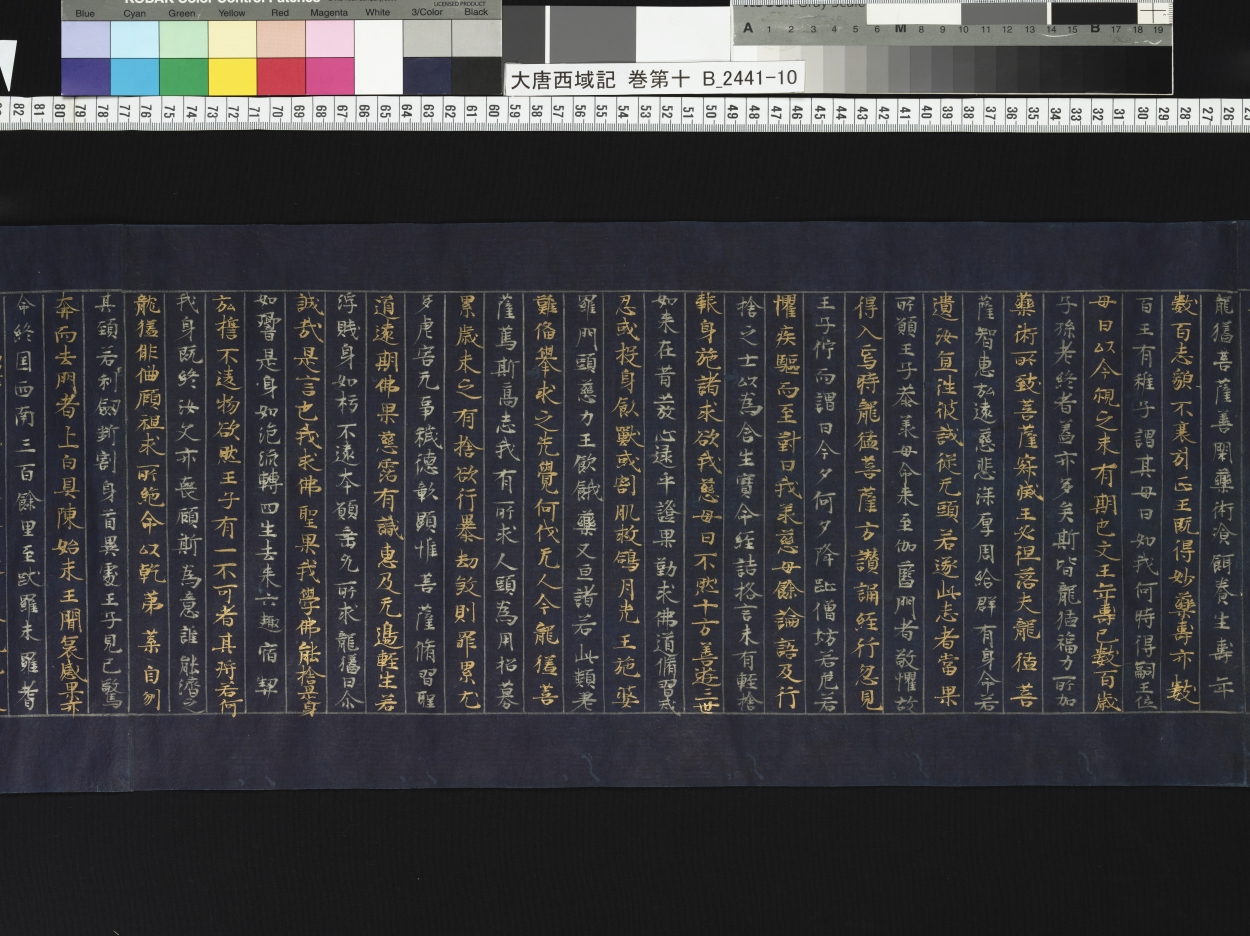 KODAK Color Control Patches
LICENSED PRODUCT
Blue Cyan Green Yellow Red Magenta White 3/Color Black
A 1 2 3 4 5 6 M 8 9 10 11 12 13 14 15 B 17 18 19
大唐西域記 巻第十 B_2441-10
82 81 80 79 78 77 76 75 74 73 72 71 70 69 68 67 66 65 64 63 62 61 60 59 58 57 56 55 54 53 52 51 50 49 48 47 46 45 44 43 42 41 40 39 38 37 36 35 34 33 32 31 30 29 28 27 26
龍猛菩薩善閑藥術飡餌養生壽年
數百志貌不衰引正王既得妙藥壽亦數
百王有稚子謂其母曰如我何時得嗣王位
母曰以今觀之未有期也父王年壽已數百歲
子孫老終者蓋亦多矣斯皆龍猛福力所加
藥術所致菩薩寂滅王必殂落夫龍猛菩
薩智惠弘遠慈悲深厚周給群有身命若
遺汝宜往彼試從乞頭若遂此志者當果
所願王子恭承母命來至伽藍門者敬懼故
得入焉時龍猛菩薩方讚誦經行忽見
王子佇而謂曰今夕何夕降趾僧坊若危若
懼疾驅而至對曰我承慈母餘論語及行
捨之士以為含生寶命經誥格言未有輕捨
報身施諸求欲我慈母曰不然十方善逝三世
如来在昔發心逮乎證果勤求佛道脩習戒
忍或投身飤獸或割肌救鴿月光王施婆
羅門頭慈力王飲餓藥叉血諸若此類羌
難俻舉求之先覺何代无人今龍猛菩
薩篤斯高志我有所求人頭為用招募
累歲未之有捨欲行暴劫殺則罪累尤
多虐害无辜穢德彰顯惟菩薩脩習聖
道遠期佛果慈霑有識惠及无邊輕生若
浮賤身如朽不違本願垂允所求龍猛曰俞
誠哉是言也我求佛聖果我學佛能捨是身
如響是身如泡流轉四生去来六趣宿契
弘誓不違物欲然王子有一不可者其將若何
我身既終汝父亦喪顧斯為意誰能濟之
龍猛俳佪顧視求所絶命以乾茅葉自刎
其頸若利劒斷割身首異處王子見已驚
奔而去門者上白具陳始末王聞哀感果亦
命終国西南三百餘里至跋羅末羅耆